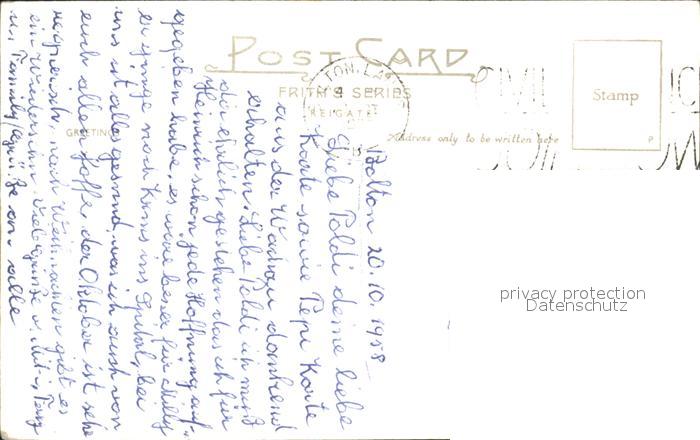 POST CARD
FRITH'S SERIES
REIGATE
GREETING
Stamp
Address only to be written here
P
TON. LA
CIVIL
privacy protection
Datenschutz
Bolton 20.10.1958
Liebe Poldi deine liebe
Karte sowie Pepi Karte
aus der Wachau dankend
erhalten. Liebe Poldi ich muß
dir ehrlich gestehen das ich für
Heini schon jede Hoffnung auf-
gegeben habe, es wäre besser für Milly
er ginge noch Krems ins Spital, bei
uns ist alles gesund, was ich auch von
euch allen hoffe, der Oktober ist sehr
regnerisch, nach Weihnachten gibt es
ein Wiedersehn. Viele Grüße v. Mitzi, Tony
u. Family Grüße an alle